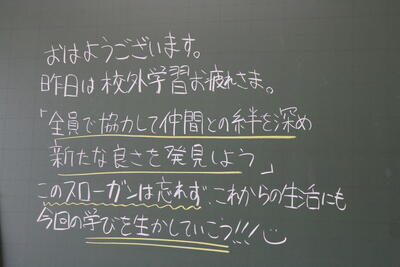 おはようございます。
昨日は校外学習お疲れさま。
「全員で協力して仲間との絆を深め
新たな良さを発見しよう」
このスローガンは忘れず、これからの生活にも
今回の学びを生かしていこう!!!